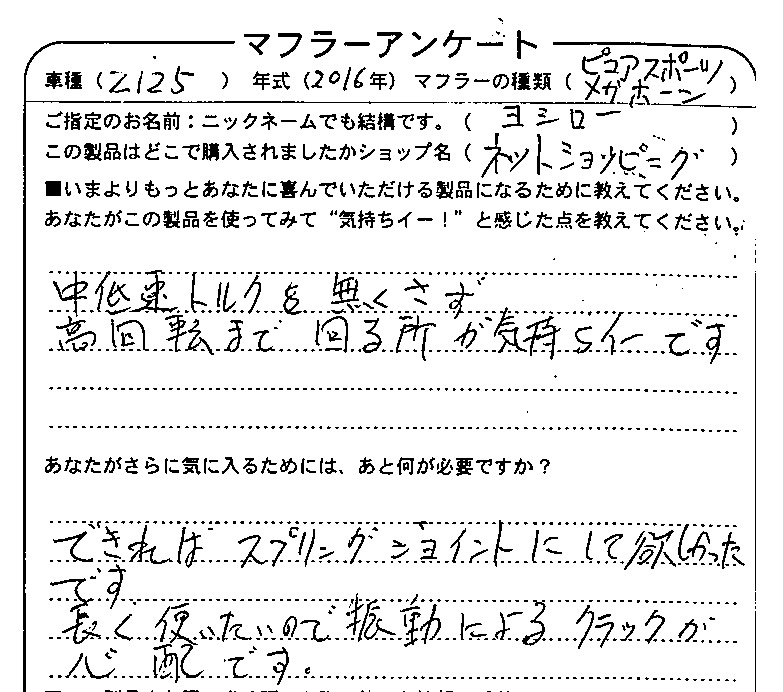 マフラーアンケート
車種（Z125　）　年式（2016年）　マフラーの種類（ピュアスポーツ
メガホーン）
ご指定のお名前：ニックネームでも結構です。（ヨシロー　）
この製品はどこで購入されましたかショップ名（ネットショッピング　）
■いまよりもっとあなたに喜んでいただける製品になるために教えてください。
あなたがこの製品を使ってみて“気持ちイー！”と感じた点を教えてください。
中低速トルクを無くさず
高回転まで回る所が気持ちイーです
あなたがさらに気に入るためには、あと何が必要ですか？
できればスプリングジョイントにして欲しかった
です
長く使いたいので振動によるクラックが
心配です。